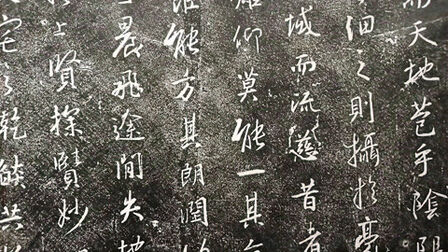 而天地苞乎陰陽
細之則攝於毫
域而流慈昔者
仰莫能一其旨
詎能方其朗潤
晨飛途間失地
上賢探賾妙
宅之乾燄共